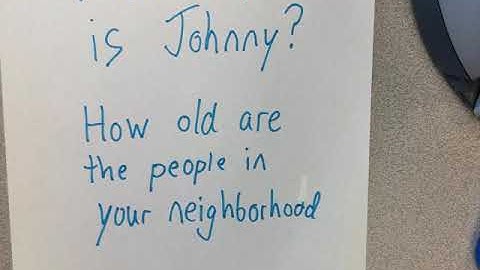 is Johnny?
How old are
the people in
your neighborhood